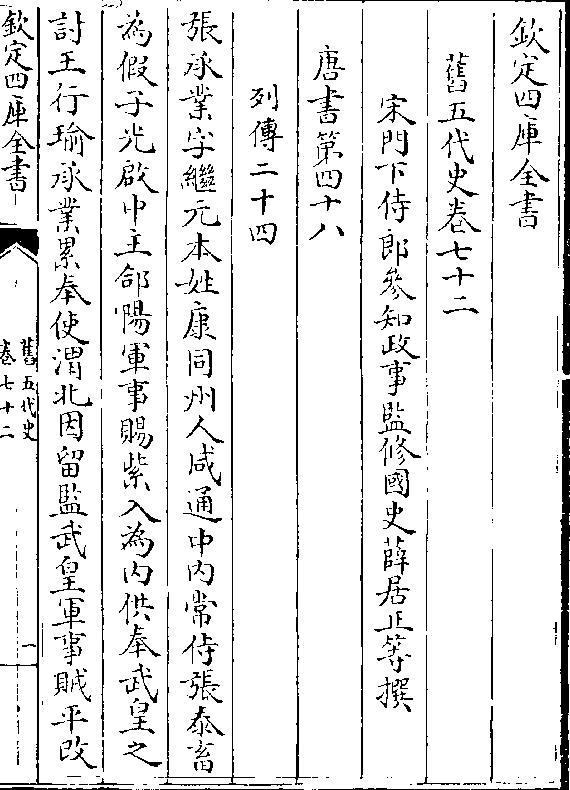 欽定四庫全書
舊五代史卷七十二
宋門下侍郎參知政事監修國史薛居正等撰
唐書第四十八
列傳二十四
張承業字繼元本姓康同州人咸通中内常侍張泰畜
為假子光啟中主郃陽軍事賜紫入為内供奉武皇之
討王行瑜承業累奉使渭北因留監武皇軍事賊平改
欽定四庫全書
舊五代史
卷七十二
一